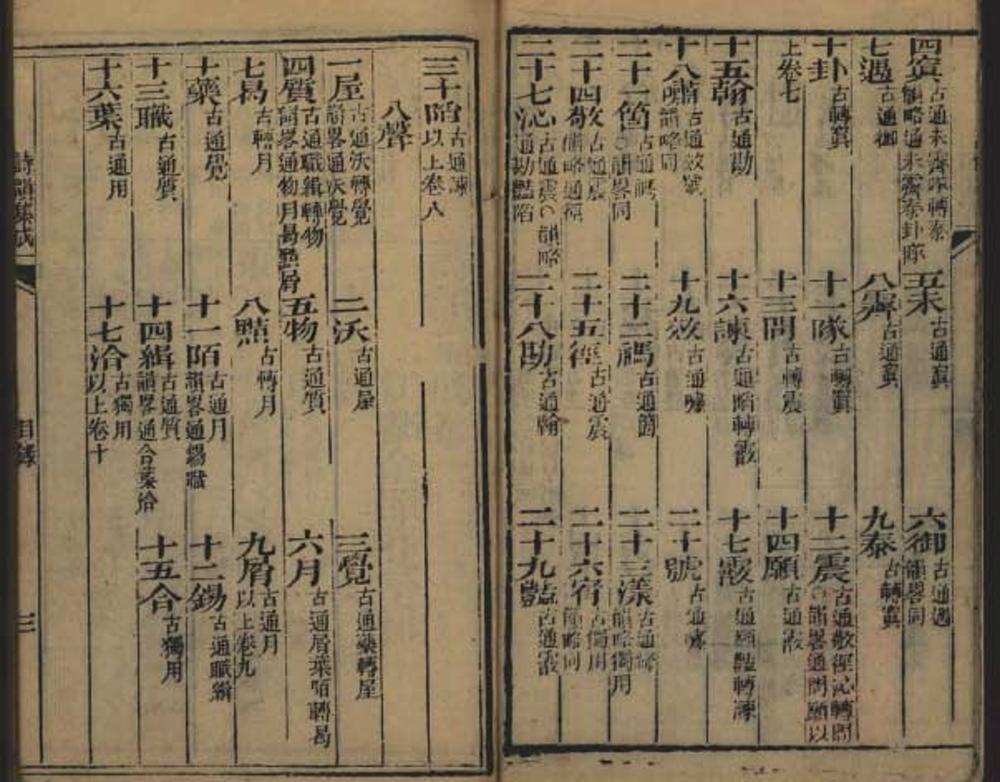 四寘 古通未霽隊轉泰 韻略通未霽泰卦隊 五未 古通寘 六御 古通遇 韻畧同
七遇 古通御 八霽 古通寘 九泰 古轉寘
十卦 古轉寘 十一隊 古轉寘 十二震 古通敬徑沁轉問 韻畧通問願以
上卷七 十三問 古轉震 十四願 古通霰
十五翰 古通勘 十六諫 古通陷轉霰 十七霰 古通願豔轉諫
十八嘯 古通效號 韻略同 十九效 古通嘯 二十號 古通嘯
二十一箇 古通禡 韻畧同 二十二禡 古通箇 二十三漾 古通 韻略獨用
二十四敬 古通震 韻略通徑 二十五徑 古通震 二十六宥 古獨用 韻略同
二十七沁 古通震○韻略 通勘豔陷 二十八勘 古通翰 二十九豔 古通霰
三十陷 古通諫 以上卷八
入聲
一屋 古通沃轉覺 韻畧通沃覺 二沃 古通屋 三覺 古通藥轉屋
四質 古通職緝轉物 韻畧通物月曷黠屑 五物 古通質 六月 古通屑葉陌轉曷
七曷 古轉月 八黠 古轉月 九屑 古通月 以上卷九
十藥 古通覺 十一陌 古通月 韻畧通錫職 十二錫 古通職緝
十三職 古通質 十四緝 古通質 韻畧通合葉洽 十五合 古獨用
十六葉 古通用 十七洽 古獨用 以上卷十
詩韻集成 目錄 三